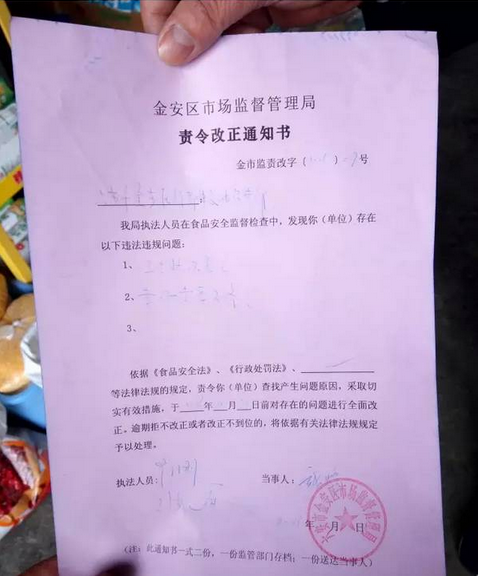 金安区市场监督管理局
责令改正通知书
金市监责改字〔 〕 号
我局执法人员在食品安全监督检查中，发现你（单位）存在
以下违法违规问题：
1、
2、
3、
依据《食品安全法》、《行政处罚法》、
等法律法规的规定，责令你（单位）查找产生问题原因，采取切
实有效措施，于 年 月 日前对存在的问题进行全面改
正。逾期拒不改正或者改正不到位的，将依据有关法律法规规定
予以处理。
执法人员：
当事人：
六安市金安区市场监督管理局
年 月 日
（注：此通知书一式二份，一份监管部门存档；一份送达当事人）